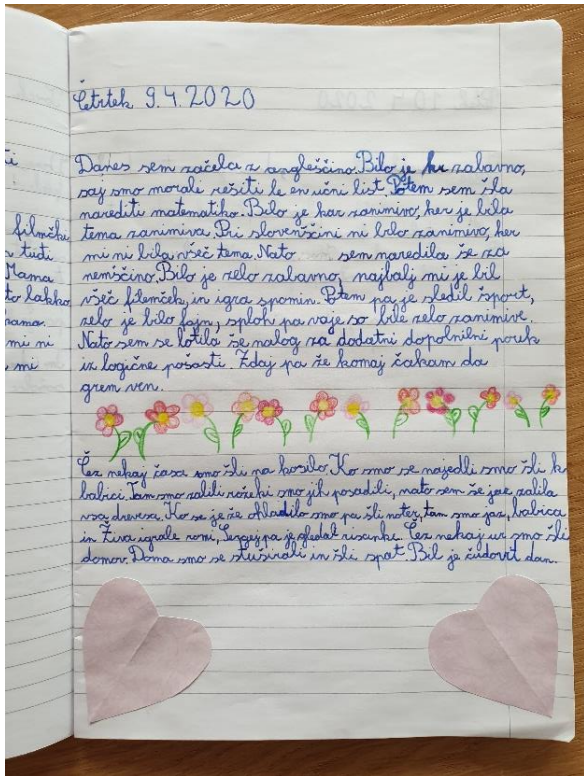 Četrtek 9.4.2020
Danes sem začela z angleščino. Bilo je zabavno,
saj smo morale rešiti le en učni list. Potem sem šla
narediti matematiko. Bilo je kar zanimivo, ker je bila
tema zanimiva. Pri slovenščini ni bilo zanimivo, ker
mi ni bila všeč tema. Nato sem naredila še za
nemščino. Bilo je zelo zabavno, najbalj mi je bil
všeč filmček, in igra spomin. Potem pa je sledil šport,
zelo je bilo fajn, sploh pa vaje so bile zelo zanimive.
Nato sem se lotila še nalog za dodatni dopolnilni pouk
iz logične pošasti. Zdaj pa že komaj čakam da
grem ven.
Čez nekaj časa smo šli na kosilo. Ko smo se najedli smo šli k
babici. Tam smo zalili rožeki smo jih posadili, nato sem še jaz zalila
vsa drevesa. Ko se je že ohladilo smo pa šli noter, tam smo jaz, babica
in Živa igrale romi, Sergej pa je gledal risanke. Čez nekaj ur smo šli
domov. Doma smo se stuširali in šli spat. Bil je čudovit dan.
filmčk
tuti
Mama
to lahko
hama.
mi ni
mi